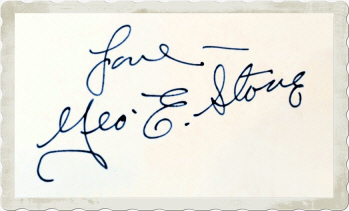 Love—
Geo. E. Stone